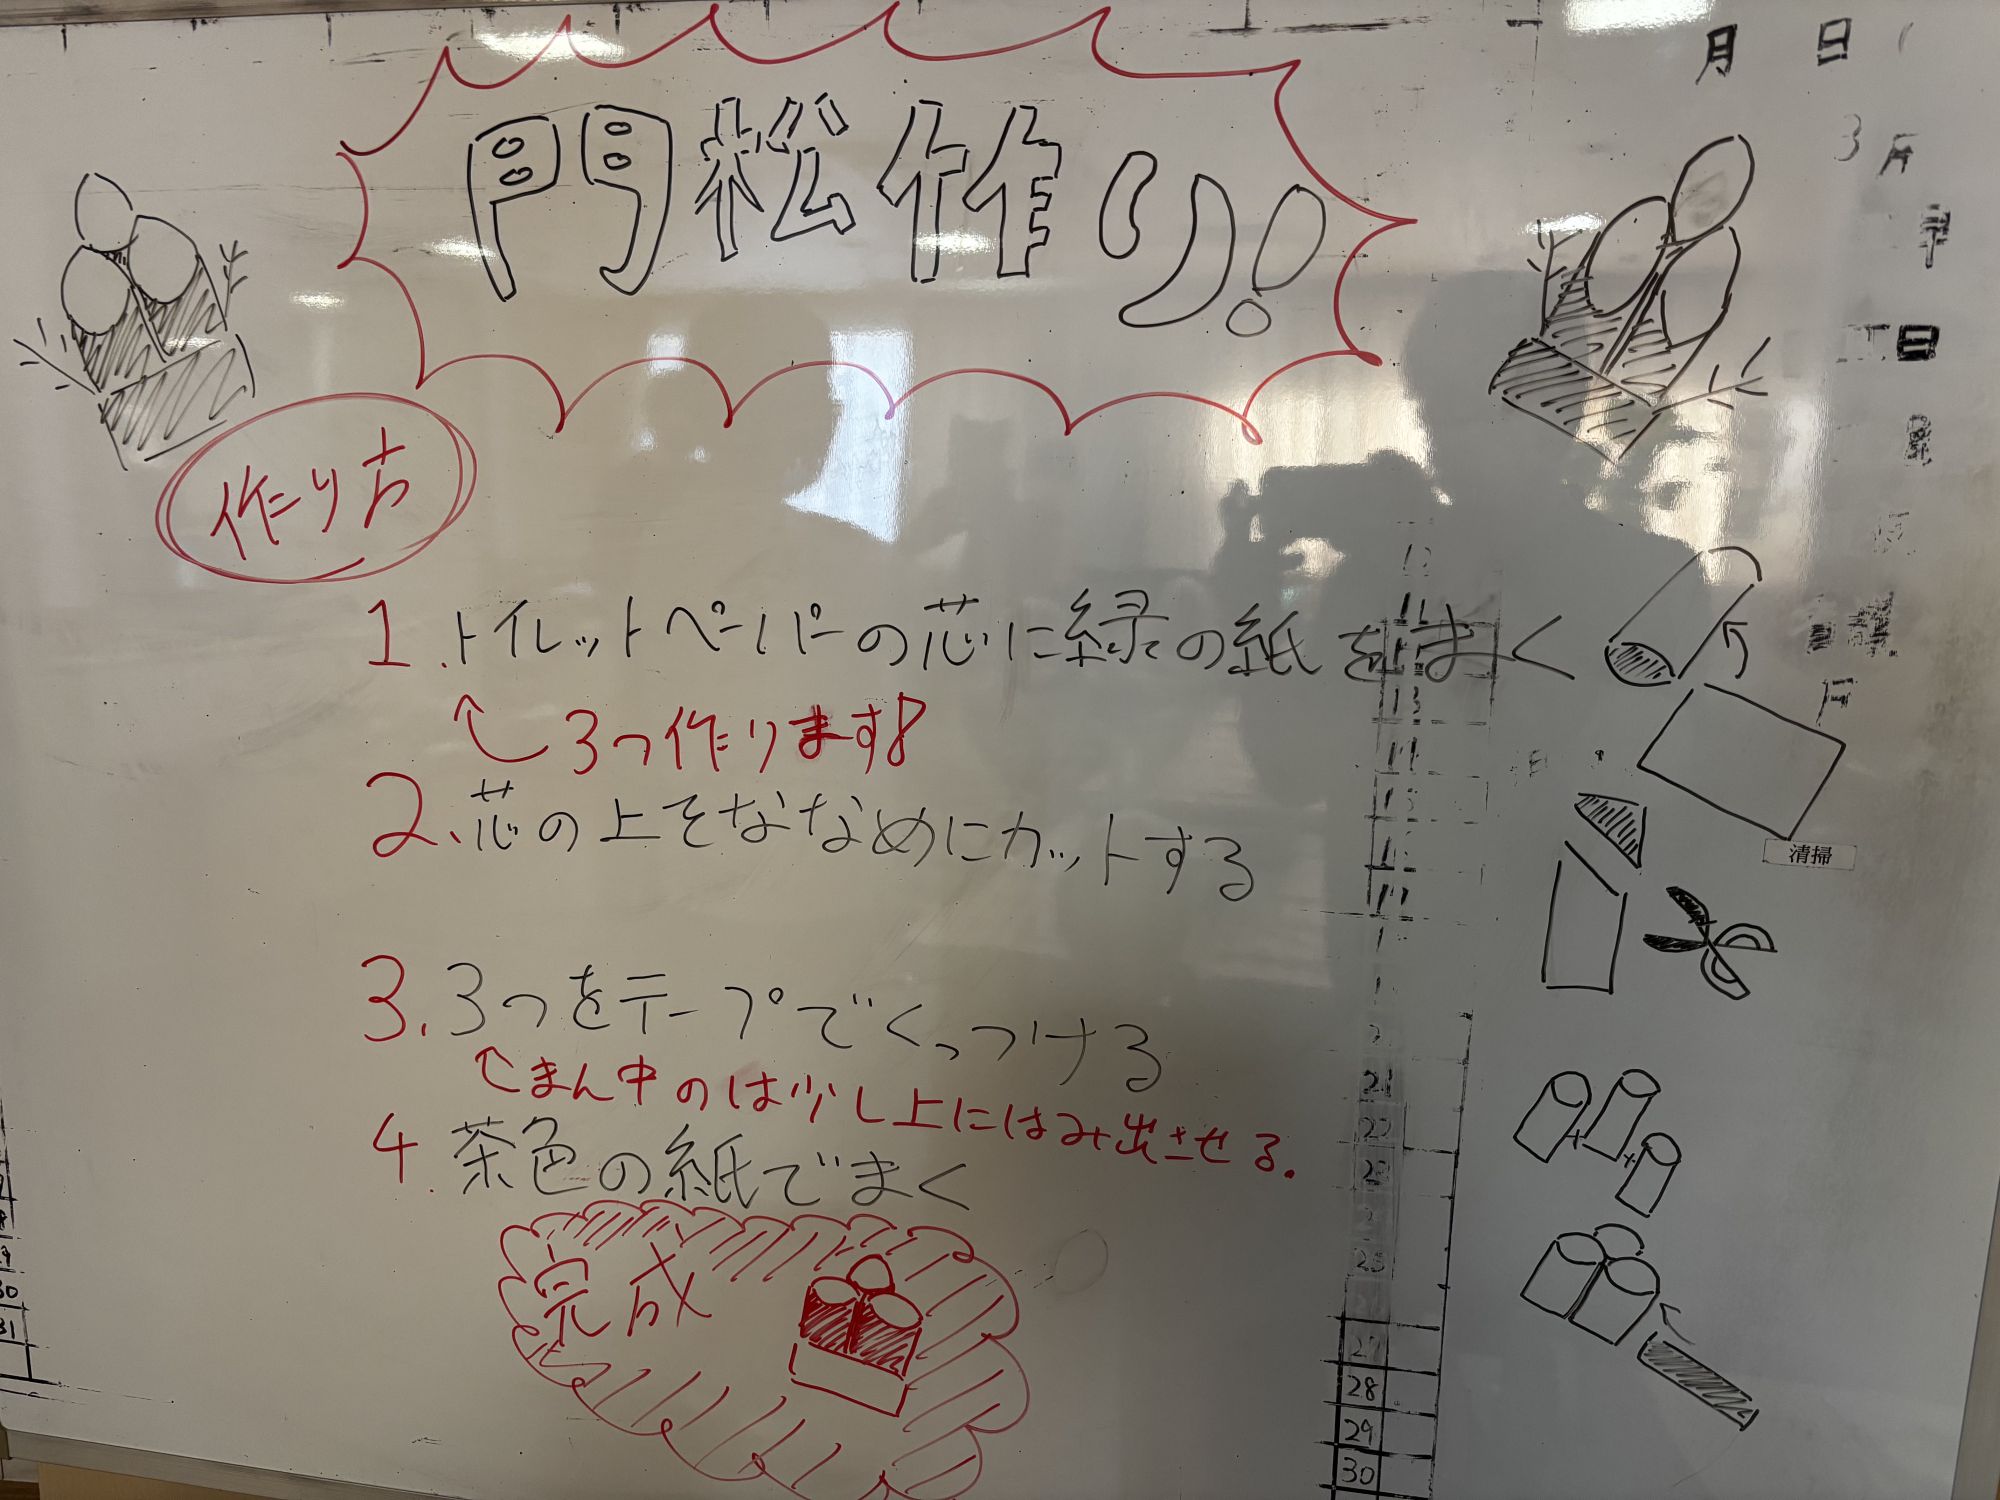 門松作り!
月 日
3月
日
作り方
1.トイレットペーパーの芯に緑の紙をまく
3つ作ります!
2.芯の上をななめにカットする
清掃
3.3つをテープでくっつける
まん中のは少し上にはみ出させる.
4.茶色の紙でまく
完成
11
13
21
22
27
28
29
30
30
31